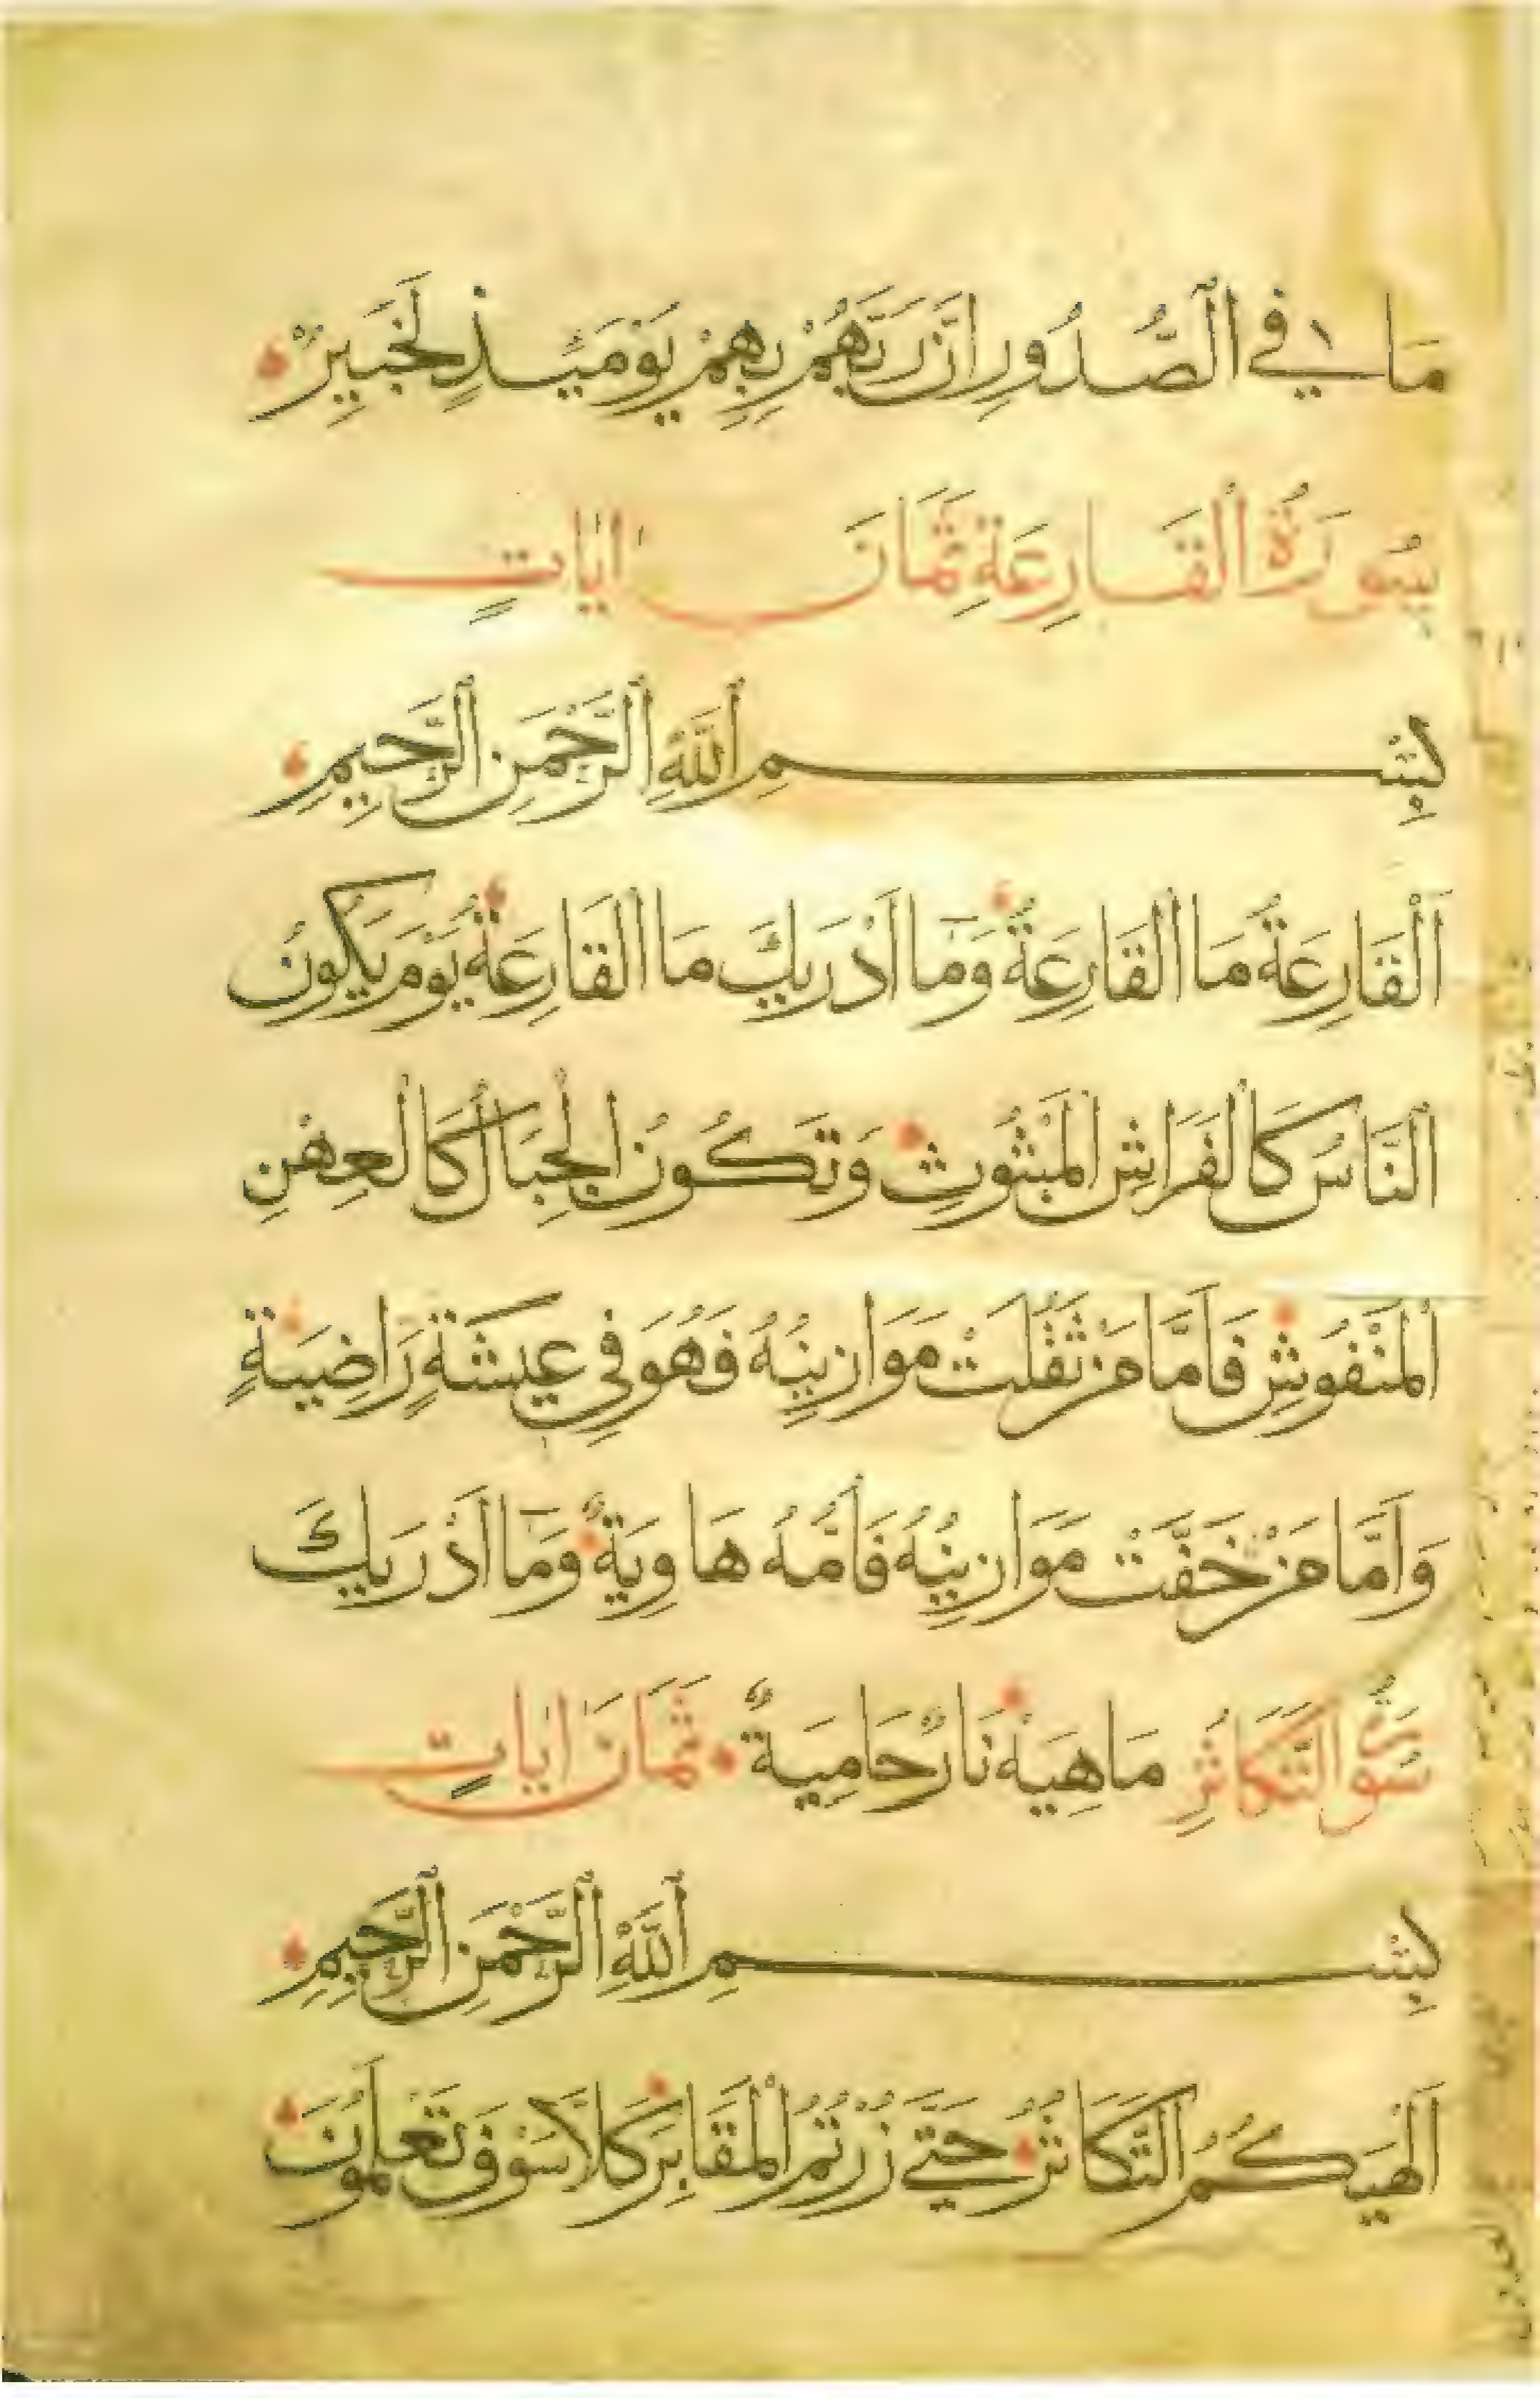 مَا فِي ٱلصُّدُورِ اِنَّ رَبَّهُمْ بِهِمْ يَوْمَئِذٍ لَخَبِيرٌ
سُورَةُ ٱلْقَارِعَةِ ثَمَانَ اٰيَاتٍ
بِسْمِ ٱللّٰهِ ٱلرَّحْمٰنِ ٱلرَّحِيمِ
اَلْقَارِعَةُ مَا ٱلْقَارِعَةُ وَمَٓا اَدْرَيكَ مَا ٱلْقَارِعَةُ يَوْمَ يَكُونُ
ٱلنَّاسُ كَالْفَرَاشِ ٱلْمَبْثُوثِ وَتَكُونُ ٱلْجِبَالُ كَالْعِهْنِ
ٱلْمَنْفُوشِ فَاَمَّا مَنْ ثَقُلَتْ مَوَازِينُهُ فَهُوَ فِي عِيشَةٍ رَاضِيَةٍ
وَاَمَّا مَنْ خَفَّتْ مَوَازِينُهُ فَاُمُّهُ هَاوِيَةٌ وَمَٓا اَدْرَيكَ
سُورَةُ ٱلتَّكَاثُرِ مَا هِيَهْ نَارٌ حَامِيَةٌ ثَمَانَ اٰيَاتٍ
بِسْمِ ٱللّٰهِ ٱلرَّحْمٰنِ ٱلرَّحِيمِ
اَلْهَيكُمُ ٱلتَّكَاثُرُ حَتَّى زُرْتُمُ ٱلْمَقَابِرَ كَلَّا سَوْفَ تَعْلَمُونَ